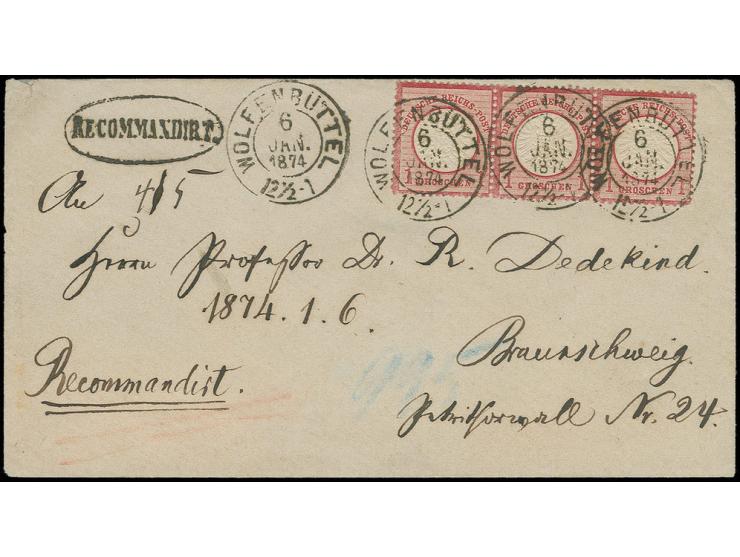 RECOMMANDIRT.
WOLFENBÜTTEL
6
JAN.
1874
12½-1
WOLFENBÜTTEL
6
JAN.
1874
12½-1
WOLFENBÜTTEL
6
JAN.
1874
12½
WOLFENBÜTTEL
6
JAN.
1874
12½-1
DEUTSCHE REICHS-POST
1 GROSCHEN 1
DEUTSCHE REICHS-POST
1 GROSCHEN 1
DEUTSCHE REICHS-POST
1 GROSCHEN 1
An 415
Herrn Professor Dr. R. Dedekind.
1874. 1. 6.
Braunschweig.
Recommandirt.
Petrithorwall Nr. 24.